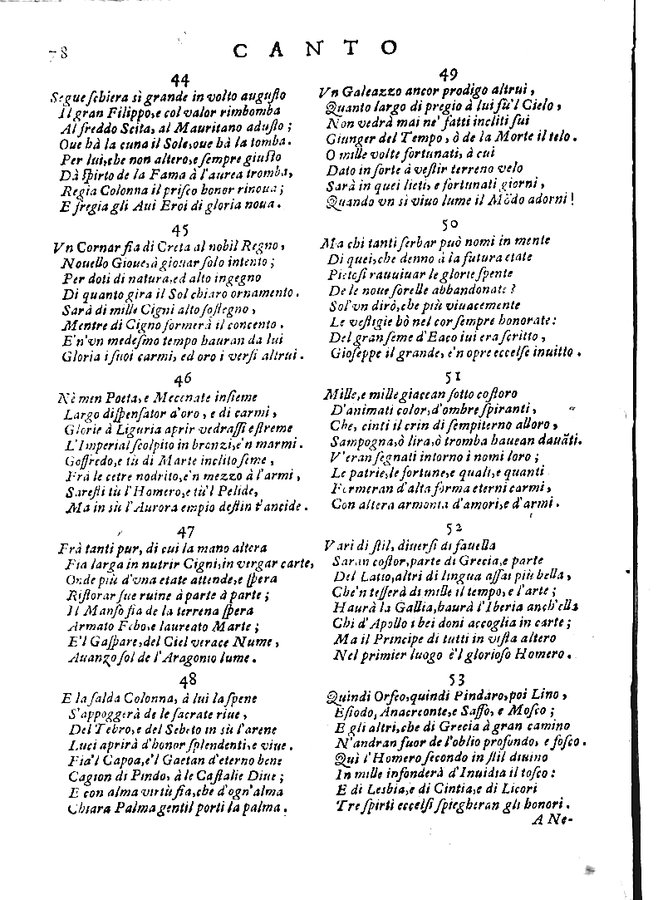 78
CANTO
44
Segue schiera sì grande in volto augusto
Il gran Filippo, e col valor rimbomba
Al freddo Scita, al Mauritano adusto;
Oue hà la cuna il Sole, oue hà la tomba.
Per lui, che non altero, e sempre giusto
Dà spirto de la Fama à l'aurea tromba,
Regia Colonna il prisco honor rinoua;
E fregia gli Aui Eroi di gloria noua.
45
Vn Cornar fia di Creta al nobil Regno,
Nouello Gioue, à giouar solo intento;
Per doti di natura, ed alto ingegno
Di quanto gira il Sol chiaro ornamento.
Sarà di mille Cigni alto sostegno,
Mentre di Cigno formerà il concento.
E'n vn medesmo tempo hauran da lui
Gloria i suoi carmi, ed oro i versi altrui.
46
Nè men Poeta, e Mecenate insieme
Largo dispensator d'oro, e di carmi,
Glorie à Liguria aprir vedrassi estreme
L'Imperial scolpito in bronzi, e'n marmi.
Goffredo, e tù di Marte inclito seme,
Frà le cetre nodrito, e'n mezzo à l'armi,
Saresti tù l'Homero, e tù'l Pelide,
Ma in sù l'Aurora empio destin t'ancide.
47
Frà tanti pur, di cui la mano altera
Fia larga in nutrir Cigni, in vergar carte,
Onde più d'vna etate attende, e spera
Ristorar sue ruine à parte à parte;
Il Manso fia de la terrena spera
Armato Febo, e laureato Marte;
E'l Gaspare, del Ciel verace Nume,
Auanzo sol de l'Aragonio lume.
48
E la salda Colonna, à lui la spene
S'appoggerà de le sacrate riue,
Del Tebro, e del Sebeto in sù l'arene
Luci aprirà d'honor splendenti, e viue.
Fia'l Capoa, e'l Gaetan d'eterno bene
Cagion di Pindo, à le Castalie Diue;
E con alma virtù fia, che d'ogn'alma
Chiara Palma gentil porti la palma.
49
Vn Galeazzo ancor prodigo altrui,
Quanto largo di pregio à lui fù'l Cielo,
Non vedrà mai ne' fatti incliti sui
Giunger del Tempo, ò de la Morte il telo.
O mille volte fortunati, à cui
Dato in sorte à vestir terreno velo
Sarà in quei lieti, e fortunati giorni,
Quando vn sì viuo lume il Mōdo adorni!
50
Ma chi tanti serbar può nomi in mente
Di quei, che denno à la futura etate
Pietosi rauuiuar le glorie spente
De le noue sorelle abbandonate?
Sol'vn dirò, che più viuacemente
Le vestigie hò nel cor sempre honorate:
Del gran seme d'Eaco iui era scritto,
Gioseppe il grande, e'n opre eccelse inuitto.
51
Mille, e mille giacean sotto costoro
D'animati color, d'ombre spiranti,
Che, cinti il crin di sempiterno alloro,
Sampogna, ò lira, ò tromba hauean dauāti.
V'eran segnati intorno i nomi loro;
Le patrie, le fortune, e quali, e quanti
Formeran d'alta forma eterni carmi,
Con altera armonia d'amori, e d'armi.
52
Vari di stil, diuersi di fauella
Saran costor, parte di Grecia, e parte
Del Latio, altri di lingua assai più bella,
Che'n tesserà di mille il tempo, e l'arte;
Haurà la Gallia, haurà l'Iberia anch'ella
Chi d'Apollo i bei doni accoglia in carte;
Ma il Principe di tutti in vista altero
Nel primier luogo è'l glorioso Homero.
53
Quindi Orfeo, quindi Pindaro, poi Lino,
Esiodo, Anacreonte, e Saffo, e Mosco;
E gli altri, che di Grecia à gran camino
N'andran fuor de l'oblio profondo, e fosco.
Quì l'Homero secondo in stil diuino
In mille infonderà d'Inuidia il tosco:
E di Lesbia, e di Cintia, e di Licori
Tre spirti eccelsi spiegheran gli honori.
A Ne-